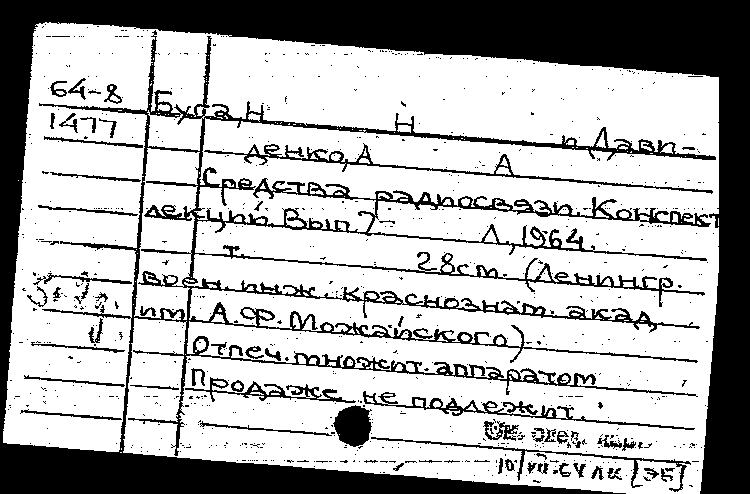 64-8
1477
Буга, Н Н и Дави-
денко, А А
Средства радиосвязи. Конспект
лекций. Вып 7-
Л., 1964.
т. 28см. (Ленингр.
воен. инж. краснознам. акад.
им. А.Ф. Можайского).
Отпеч. множит. аппаратом
Продаже не подлежит.
См. след.
10/VII.64 ЛК [ЭБ]